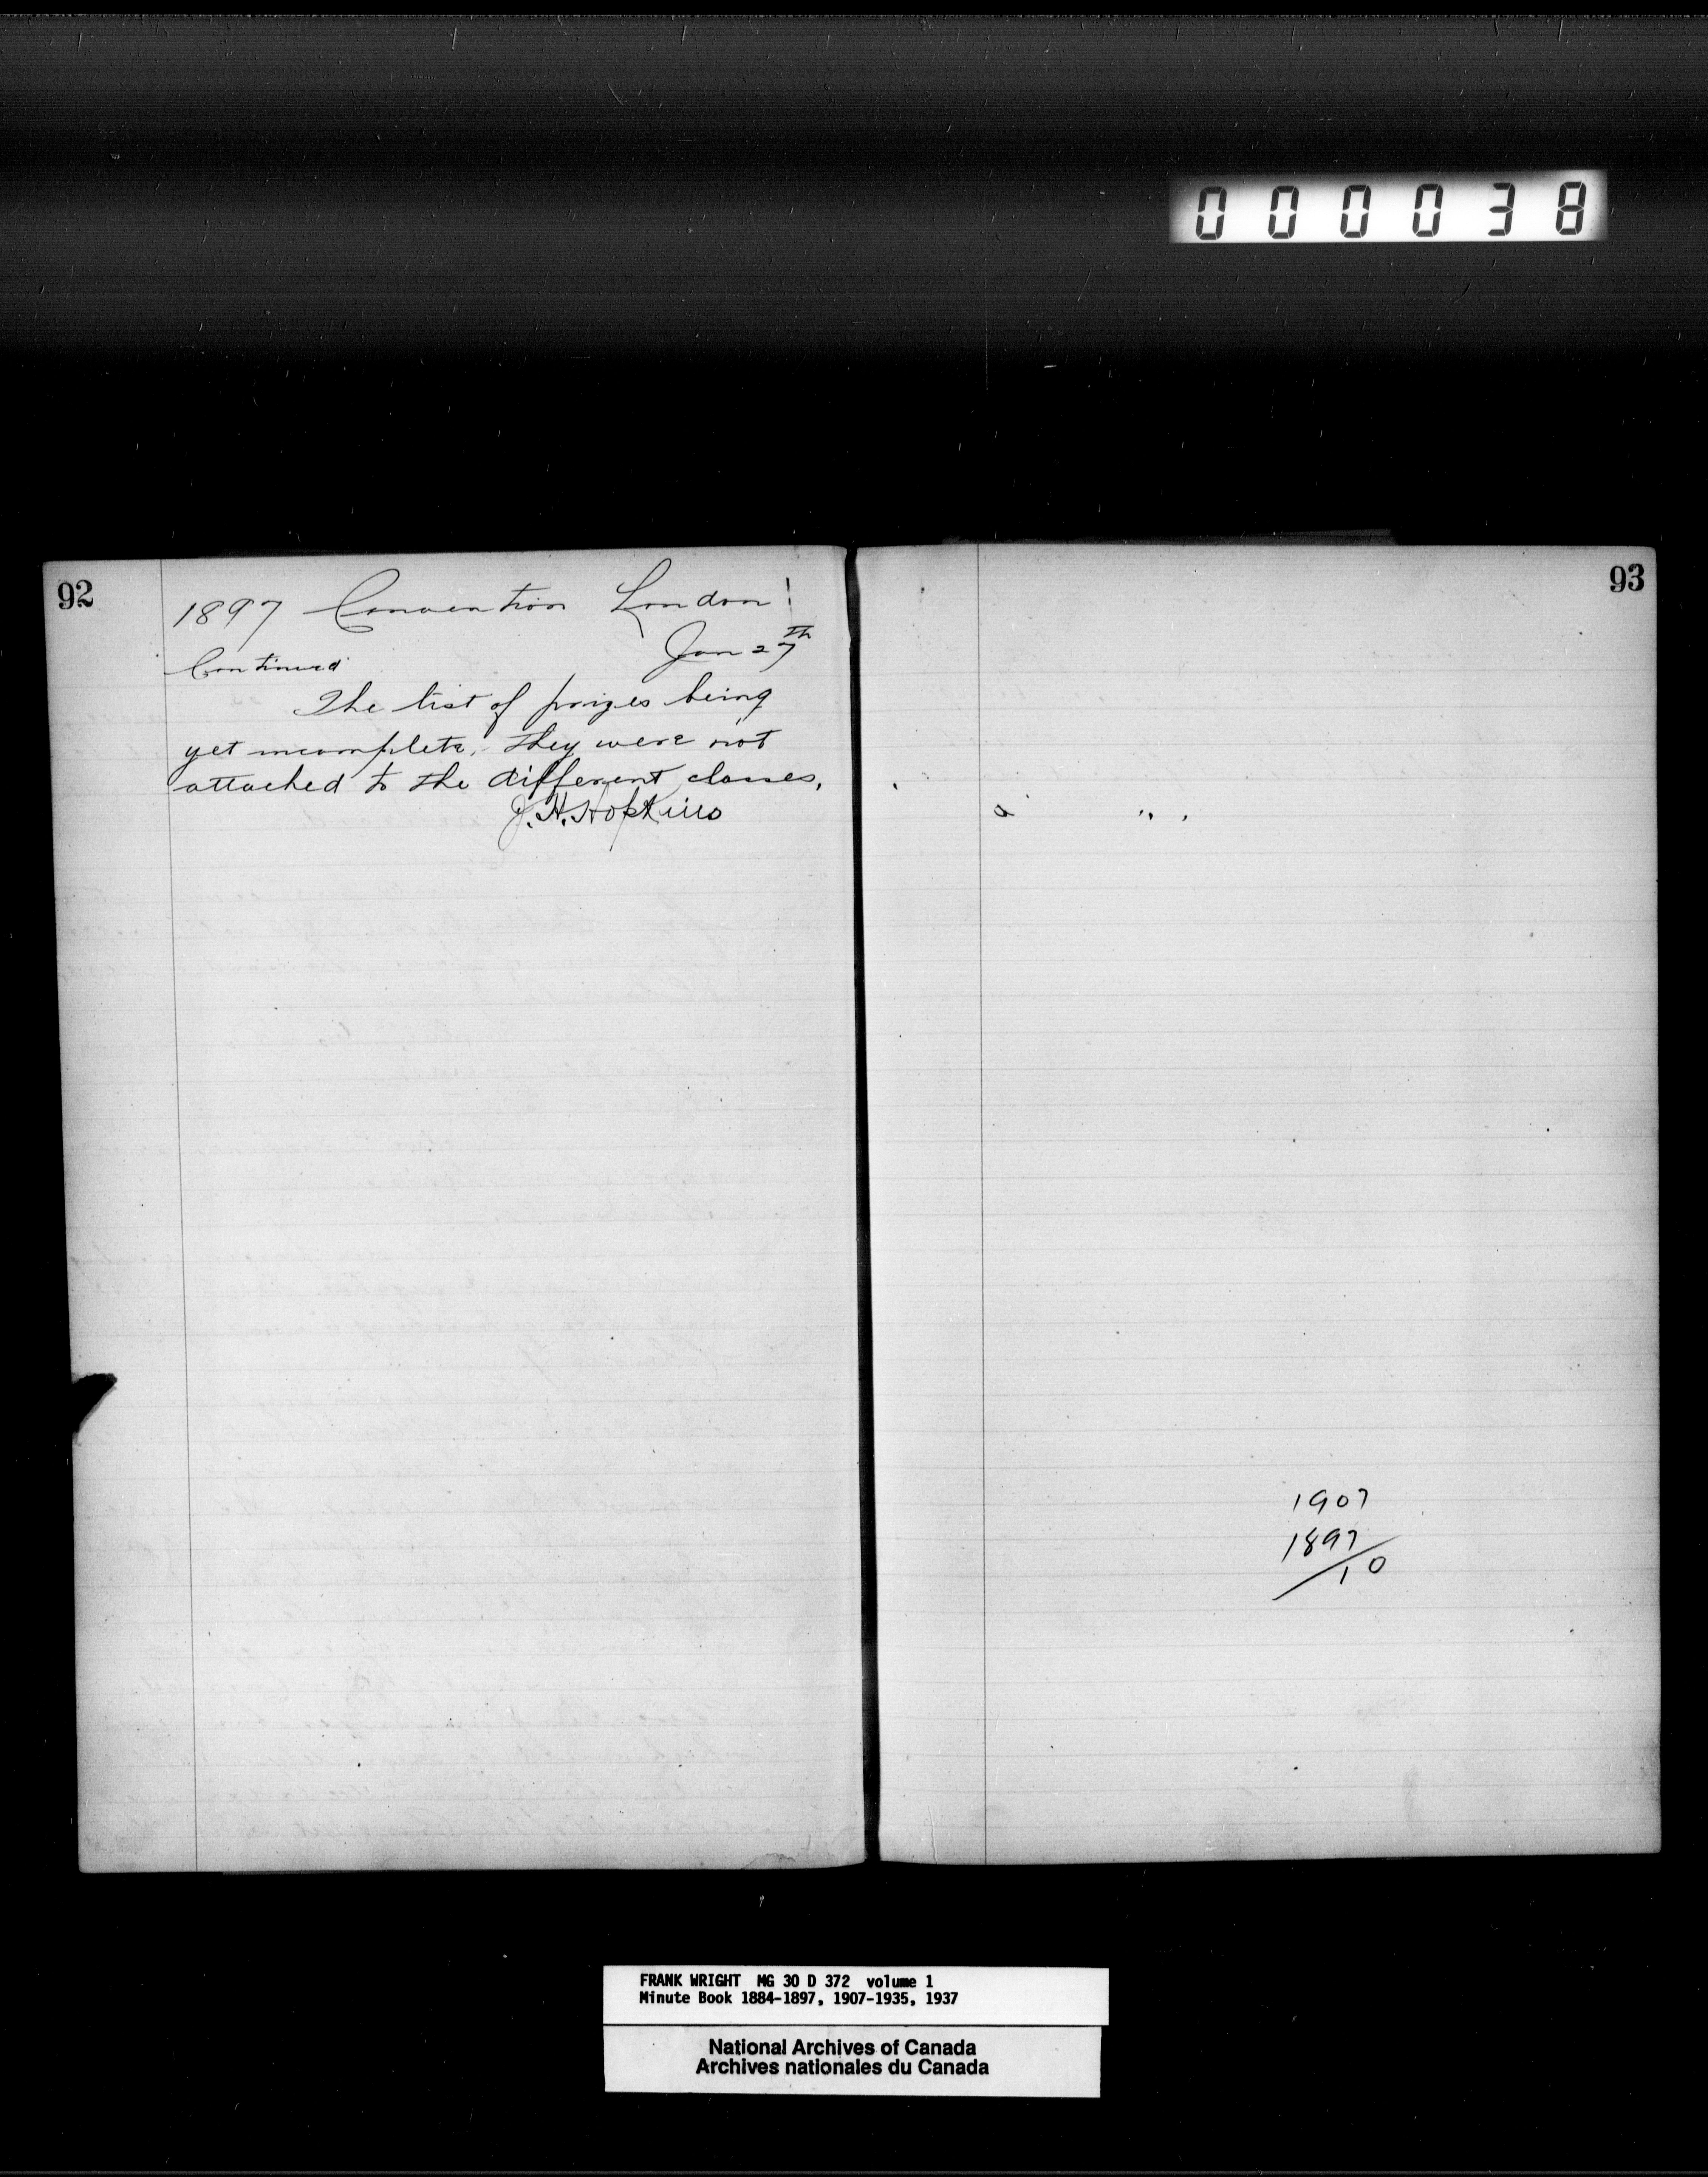 000038
92
1897 Convention London!
Jan 27th
Continued
The list of prizes being
yet incomplete, they were not
attached to the different classes.
J. H. Hopkins
93
1907
1897
10
FRANK WRIGHT MG 30 D 372 volume 1
Minute Book 1884-1897, 1907-1935, 1937
National Archives of Canada
Archives nationales du Canada